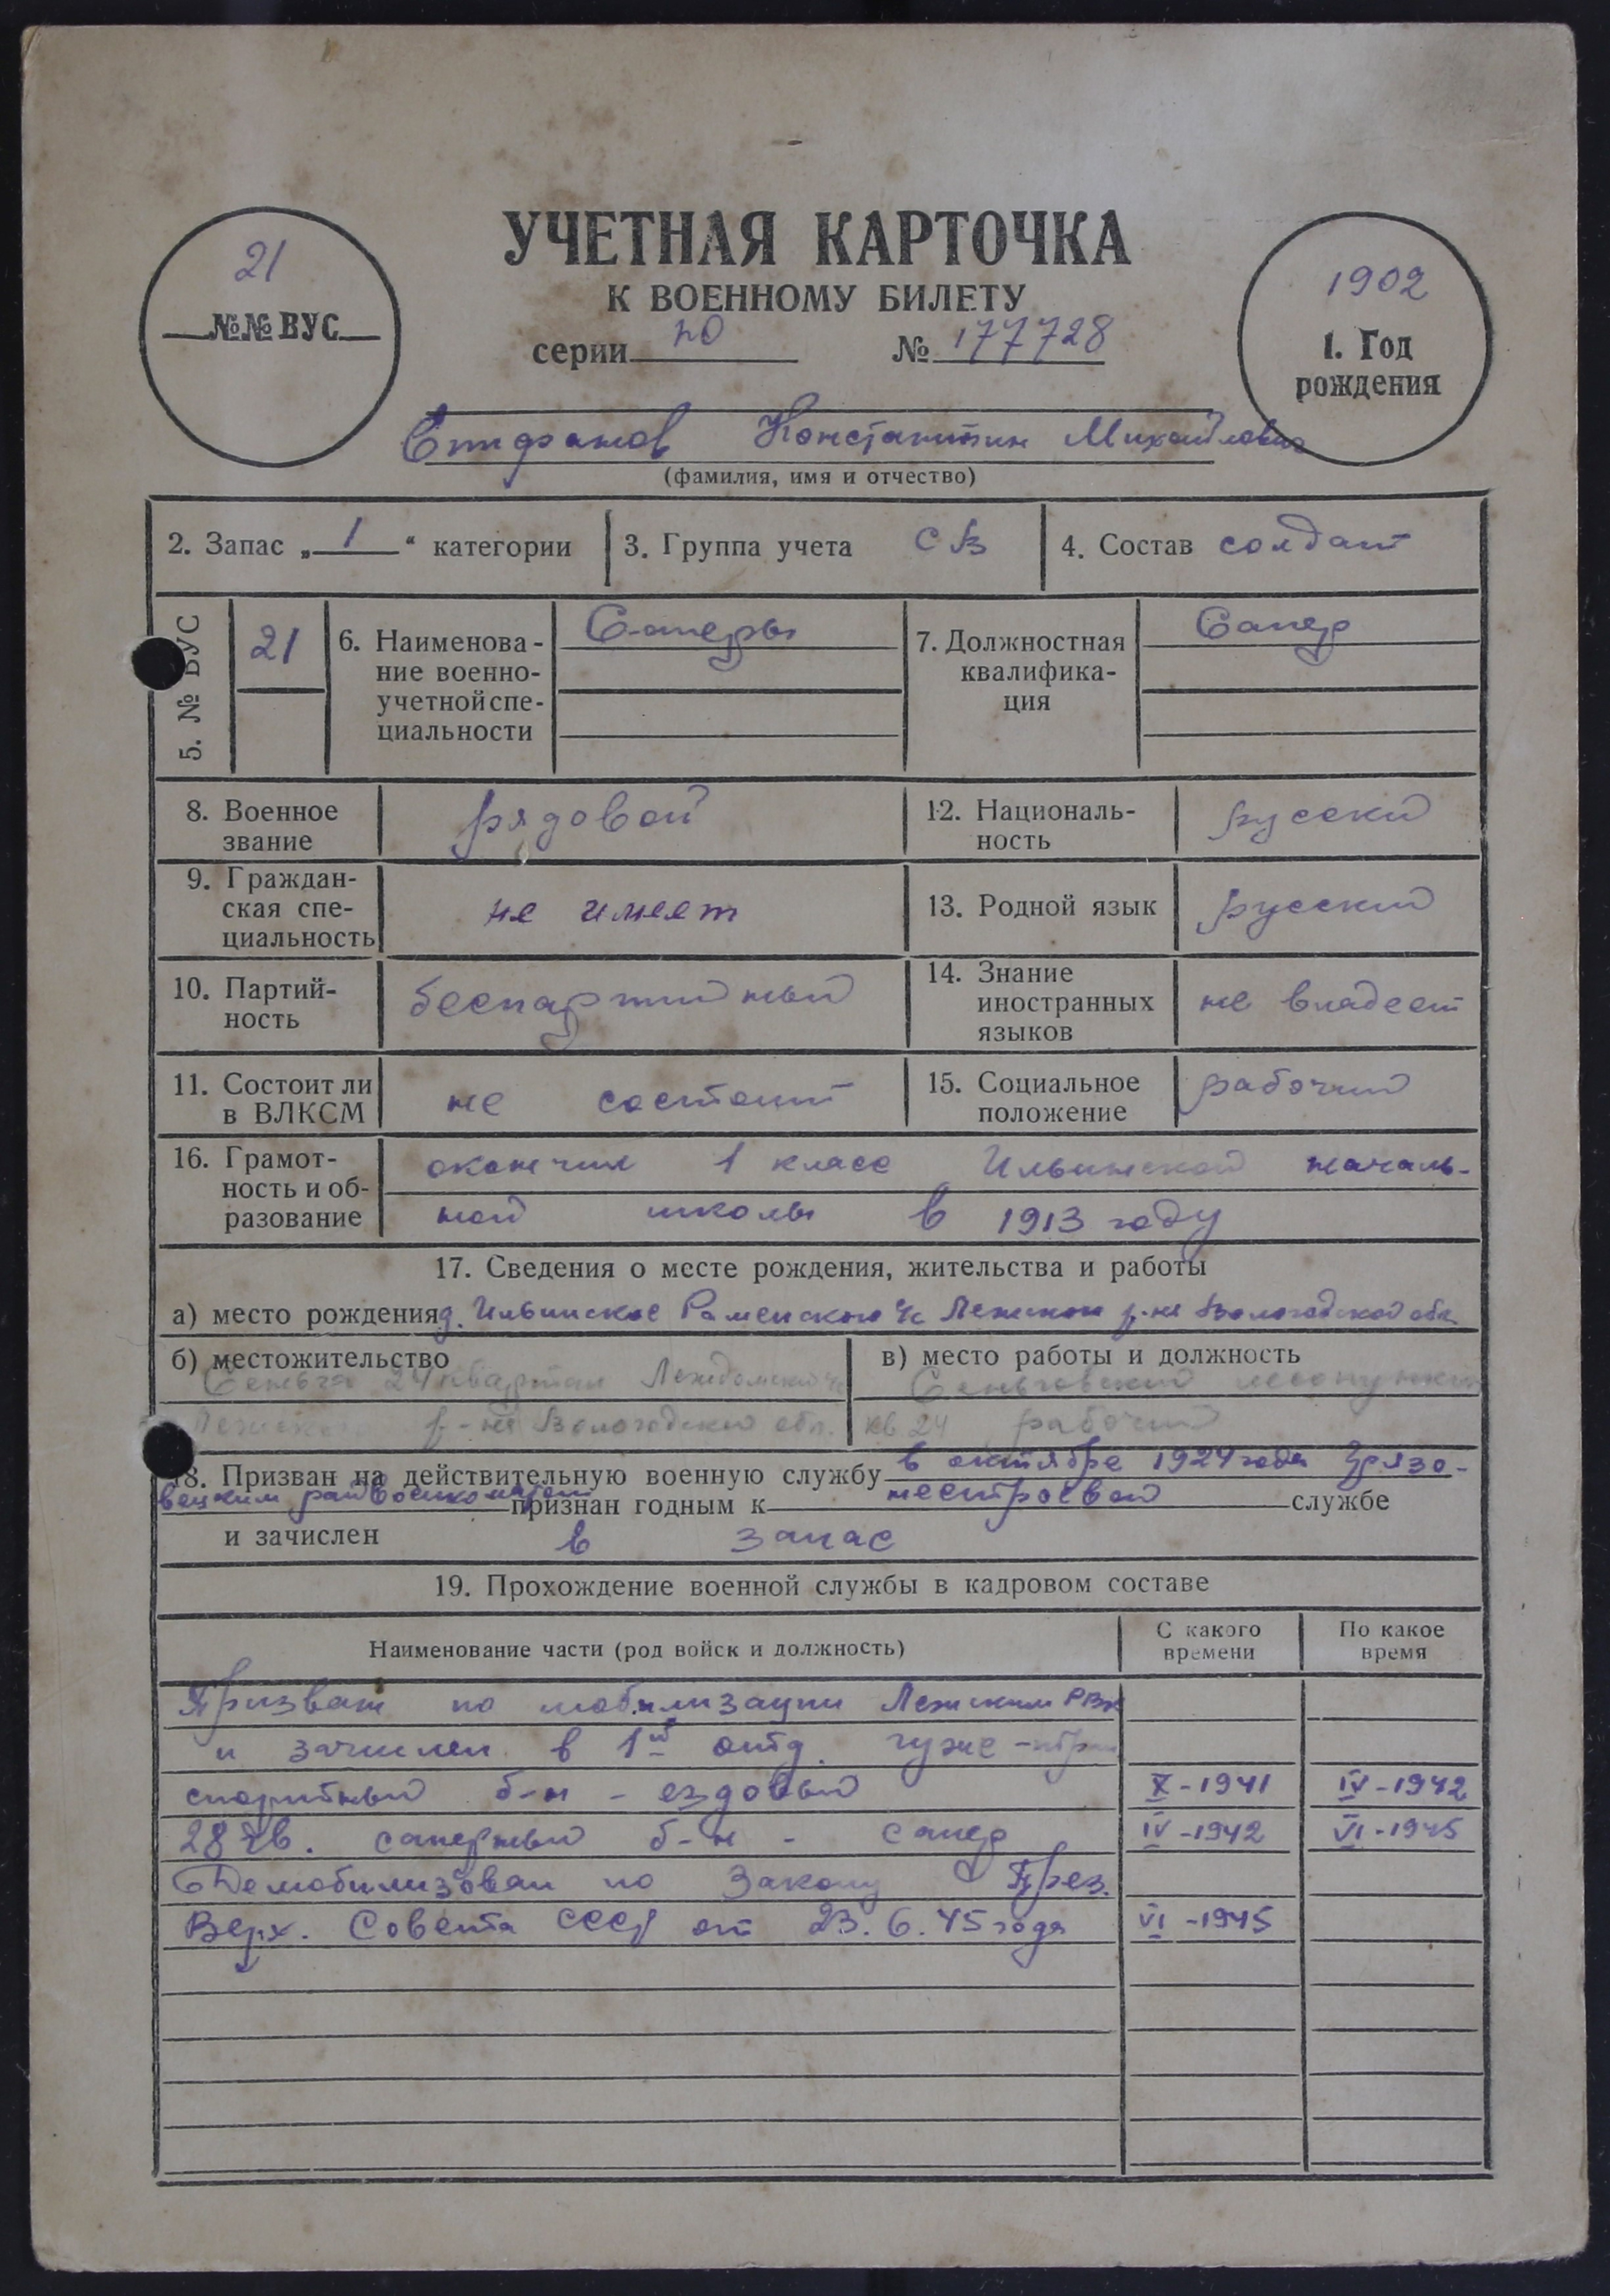 21
№№ ВУС
УЧЕТНАЯ КАРТОЧКА
К ВОЕННОМУ БИЛЕТУ
серии по № 177728
1902
1. Год
рождения
Епифанов Константин Михайлович
(фамилия, имя и отчество)
2. Запас „ 1 “ категории 3. Группа учета СВ 4. Состав солдат
5. № ВУС 21
6. Наименова-
ние военно-
учетной спе-
циальности
Саперы
7. Должностная
квалифика-
ция
Сапер
8. Военное
звание
рядовой
12. Националь-
ность
русский
9. Граждан-
ская спе-
циальность
не имеет
13. Родной язык русский
10. Партий-
ность
беспартийный
14. Знание
иностранных
языков
не владеет
11. Состоит ли
в ВЛКСМ
не состоит
15. Социальное
положение
рабочий
16. Грамот-
ность и об-
разование
окончил 1 класс Ильинской началь-
ной школы в 1913 году
17. Сведения о месте рождения, жительства и работы
а) место рождения д. Ильинское Раменского с/с Лежском р-не Вологодской обл.
б) местожительство
Сеньга 24 квартал Леждомской с/с
Лежского р-на Вологодской обл.
в) место работы и должность
Сеньговский лесопункт
кв 24 рабочий
18. Призван на действительную военную службу в октябре 1924 года Грязо-
вецким райвоенкоматом признан годным к нестроевой службе
и зачислен в запас
19. Прохождение военной службы в кадровом составе
Наименование части (род войск и должность) С какого
времени По какое
время
Призван по мобилизации Лежским РВК
и зачислен в 1й отд. гуже-тран
спортный б-н - ездовый X - 1941 IV - 1942
28 гв. саперный б-н - сапер IV - 1942 VI - 1945
Демобилизован по Закону През.
Верх. Совета СССР от 23.6.45 года VI - 1945